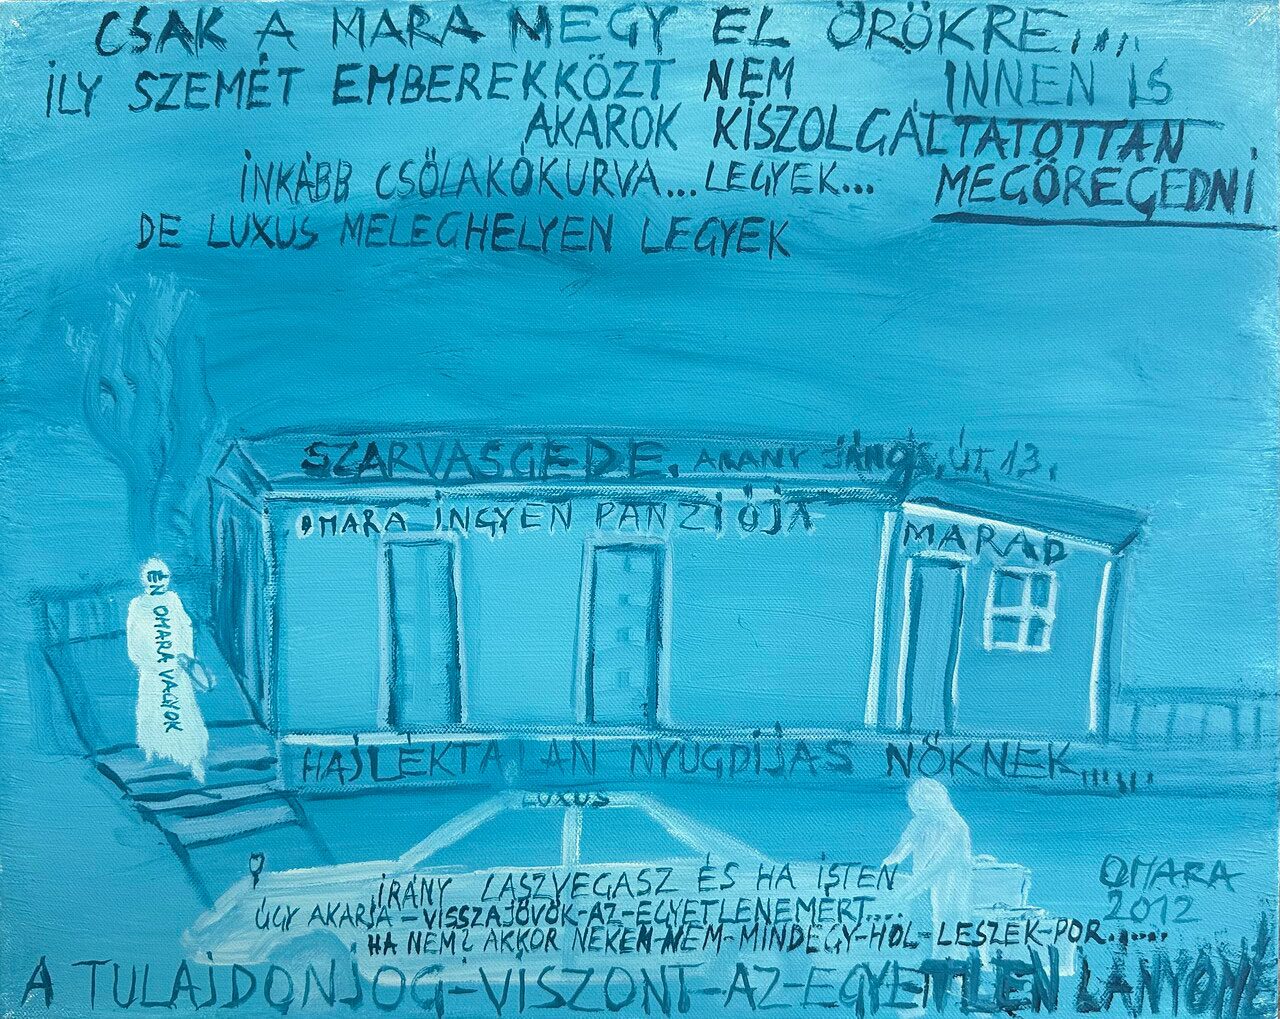 CSAK A MARA MEGY EL ÖRÖKRE....
INNEN IS
ILY SZEMÉT EMBEREKKÖZT NEM
AKAROK KISZOLGÁLTATOTTAN
MEGÖREGEDNI
INKÁBB CSÖLAKÓKURVA... LEGYEK...
DE LUXUS MELEGHELYEN LEGYEK
SZARVASGEDE. ARANY JÁNOS, ÚT, 13,
OMARA INGYEN PANZIÓJA
MARAD
ÉN OMARA VAGYOK
HAJLÉKTALAN NYUGDÍJAS NŐKNEK......
LUXUS
IRÁNY LASZVEGASZ ÉS HA ISTEN
ÚGY AKARJA-VISSZAJÖVÖK-AZ-EGYETLENEMÉRT....
HA NEM? AKKOR NEKEM-NEM-MINDEGY-HOL-LESZEK-POR......
OMARA
2012
A TULAJDONJOG-VISZONT-AZ-EGYETLEN LÁNYOMÉ